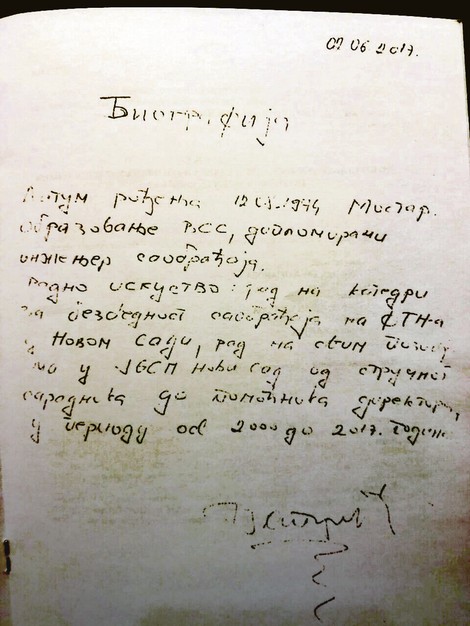 07 06 2017.
Биографија
Датум рођења 12.03.1974 Мостар.
образовање ВСС, дипломирани
инжењер саобраћаја.
Радно искуство: рад на катедри
за безбедност саобраћаја на ФТН-а
у Новом Саду, рад на свим
у ЈГСП Нови Сад од стручног
сарадника до помоћника директора,
у периоду od 2000 до 2017. године